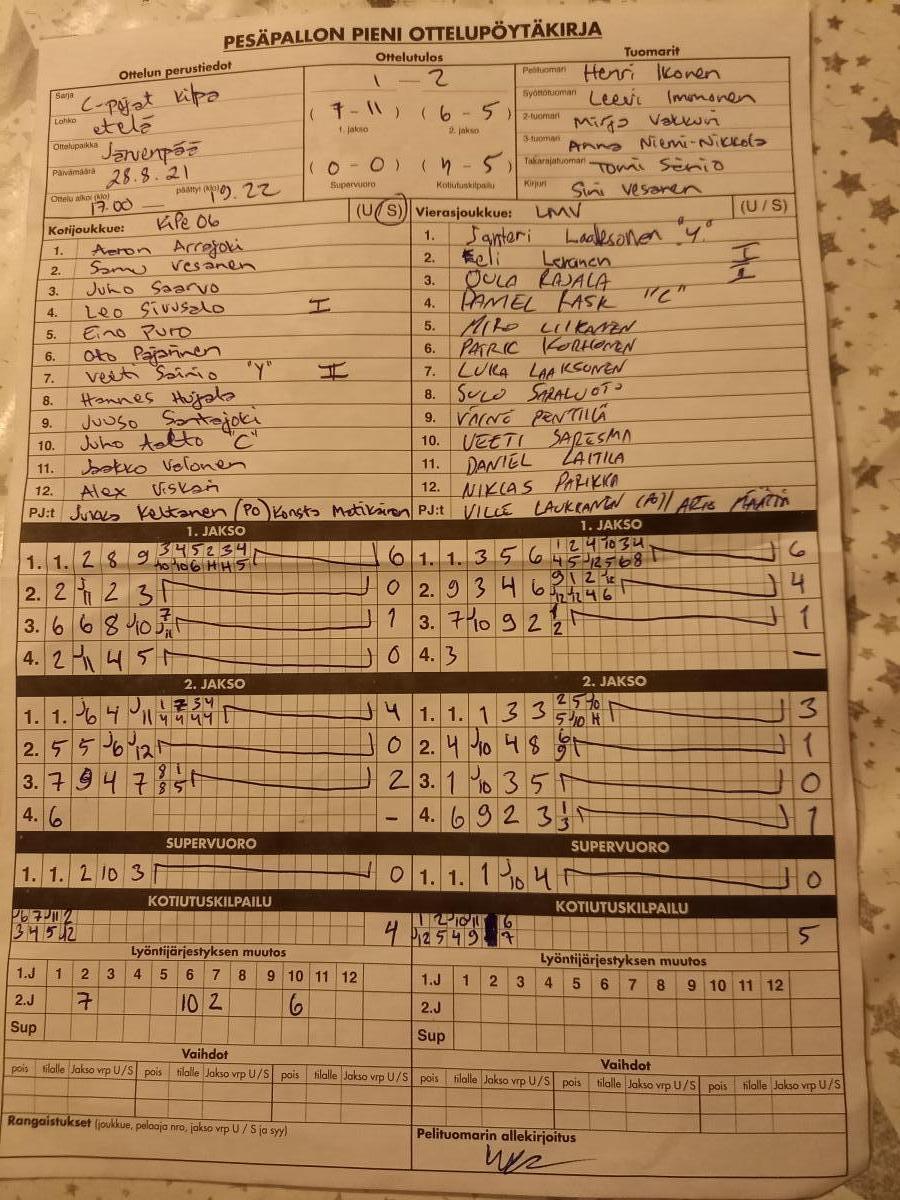 PESÄPALLON PIENI OTTELUPÖYTÄKIRJA
Ottelun perustiedot
Sarja C-pojat Kilpa
Lohko etelä
Ottelupaikka Järvenpää
Päivämäärä 28.8.21
Ottelu alkoi (klo) 17.00 — päättyi (klo) 19.22
Ottelutulos
1 – 2
(7-11) (6-5)
1. jakso 2. jakso
(0-0) (4-5)
Supervuoro Kotiutuskilpailu
Tuomarit
Pelituomari Henri Ikonen
Syöttötuomari Leevi Immonen
2-tuomari Mirja
3-tuomari Anna Niemi-Nikkola
Takarajatuomari Tomi Sänio
Kirjuri Sini Vesanen
Kotijoukkue: KiPe 06 (U/S)
1. Aaron Arrajoki
2. Samu Vesanen
3. Juho Saarvo
4. Leo Sivusalo I
5. Eino Puro
6. Oto Pajarinen
7. Veeti Sainio "Y" II
8. Hannes Hujala
9. Juuso Santajoki
10. Juho Aalto "C"
11. Jaakko Valonen
12. Alex
PJ:t Jukka Keltanen (PO) Konsta Motikainen
Vierasjoukkue: LMV (U/S)
1. Santeri Laaksonen "Y"
2. Eeli Leranen I
3. OULA RAJALA I
4. DANIEL RASK "C"
5. MIRO LIIKANEN
6. PATRIC KORHONEN
7. LUKA LAAKSONEN
8. SULO SARALUOTO
9. VÄINÖ PENTTILÄ
10. VEETI SARESMA
11. DANIEL LAITILA
12. NIKLAS PARIKKA
PJ:t VILLE LAUKKANEN (PJ)
1. JAKSO
1. 1. 2 8 9 3 4 5 2 3 4 6
10 10 6 11 11 5
2. 2 J11 2 3 0
3. 6 6 8 J10 7 1
J11
4. 2 J11 4 5 0
1. JAKSO
1. 1. 3 5 6 1 2 4 10 3 4 6
4 5 J12 5 6 8
2. 9 3 4 6 9 1 2 J12 4
J12 J12 4 6
3. 7 J10 9 2 1 1
2
4. 3 —
2. JAKSO
1. 1. J6 4 J11 1 7 3 4 4
4 4 4 4
2. 5 5 J6 J12 0
3. 7 9 4 7 8 1 2
8 5
4. 6 -
2. JAKSO
1. 1. 1 3 3 2 5 J10 3
5 J10 11
2. 4 J10 4 8 6 1
9
3. 1 J10 3 5 0
4. 6 9 2 3 1 1
3
SUPERVUORO
1. 1. 2 10 3 0
SUPERVUORO
1. 1. 1 J10 4 0
KOTIUTUSKILPAILU
J6 7 J11 2
3 4 5 J2 4
KOTIUTUSKILPAILU
1 2 J10 11 6
J12 5 4 9 7 5
Lyöntijärjestyksen muutos
1.J 1 2 3 4 5 6 7 8 9 10 11 12
2.J 7 10 2 6
Sup
Lyöntijärjestyksen muutos
1.J 1 2 3 4 5 6 7 8 9 10 11 12
2.J
Sup
Vaihdot
pois tilalle Jakso vrp U/S pois tilalle Jakso vrp U/S pois tilalle Jakso vrp U/S
Vaihdot
pois tilalle Jakso vrp U/S pois tilalle Jakso vrp U/S pois tilalle Jakso vrp U/S
Rangaistukset (joukkue, pelaaja nro, jakso vrp U / S ja syy)
Pelituomarin allekirjoitus